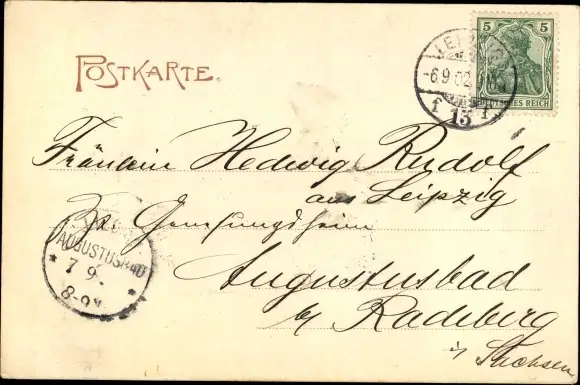 POSTKARTE.
5 5
DEUTSCHES REICH
LEIPZIG
-6.9.02
f. 13 f.
Fräulein Hedwig Rudolf
aus Leipzig
Genesungsheim
AUGUSTUSBAD
* 7 9. *
8-9V.
Augustusbad
by Radeberg
in Sachsen